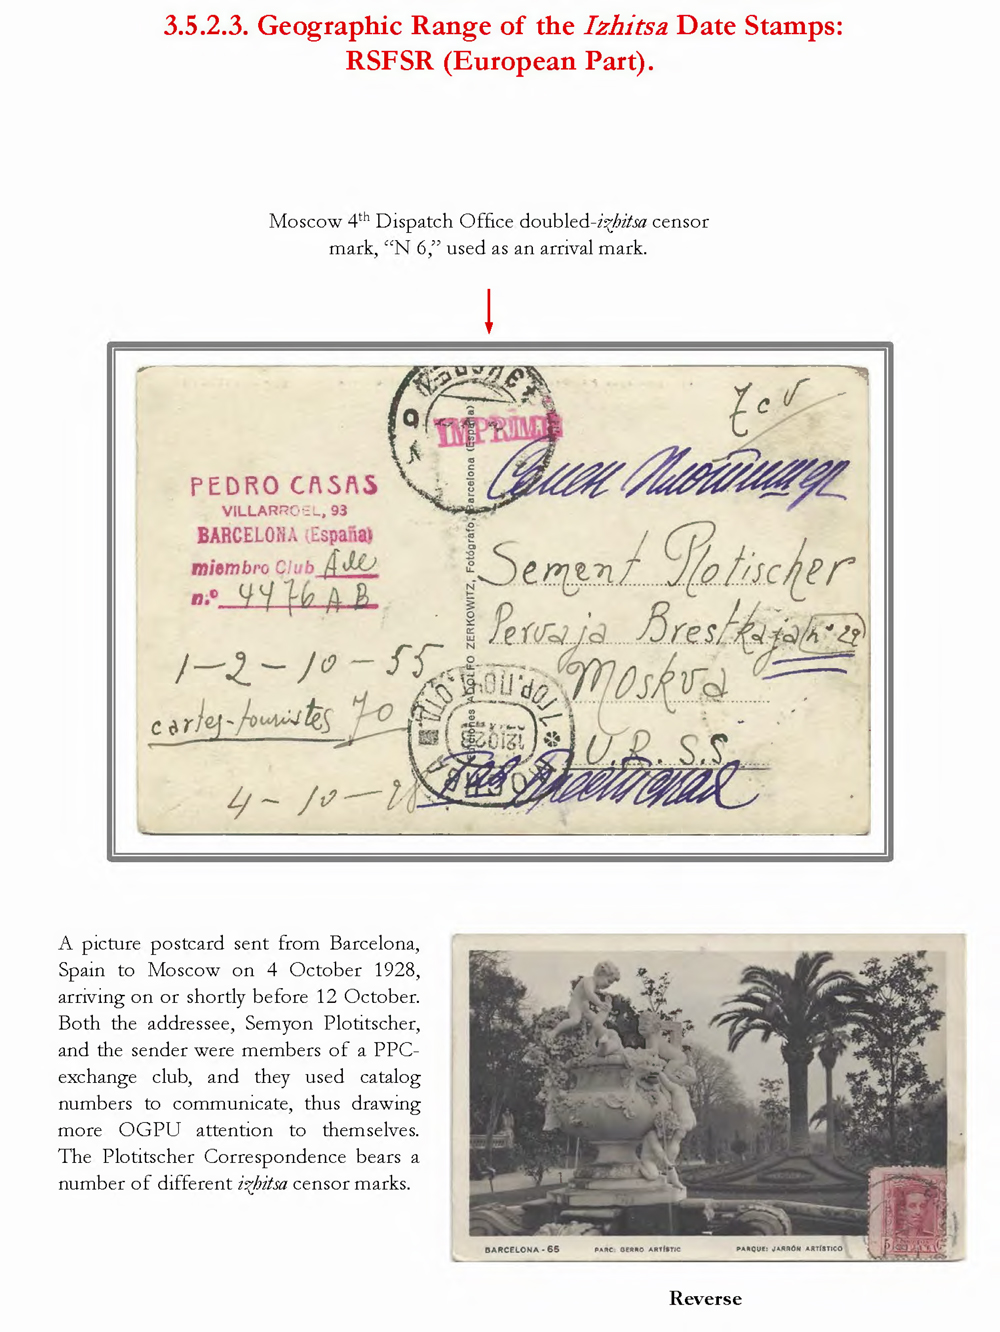 3.5.2.3. Geographic Range of the Izhitsa Date Stamps:
RSFSR (European Part).
Moscow 4th Dispatch Office doubled-izhitsa censor
mark, “N 6,” used as an arrival mark.
7 c V
IMPRIMÉ
PEDRO CASAS
VILLARROEL, 93
BARCELONA (España)
miembro Club
n.º 4476 A B
1-2-10-55
cartes-touristes 70
4-10-28
ADOLFO ZERKOWITZ, Fotógrafo, Barcelona (España)
Sement Plotischer
Pervaja Brestkaja nº 29
Moskva
U.R.S.S.
12 10 28
A picture postcard sent from Barcelona,
Spain to Moscow on 4 October 1928,
arriving on or shortly before 12 October.
Both the addressee, Semyon Plotitscher,
and the sender were members of a PPC-
exchange club, and they used catalog
numbers to communicate, thus drawing
more OGPU attention to themselves.
The Plotitscher Correspondence bears a
number of different izhitsa censor marks.
BARCELONA - 65 PARC: GERRO ARTÍSTIC PARQUE: JARRÓN ARTÍSTICO
Reverse